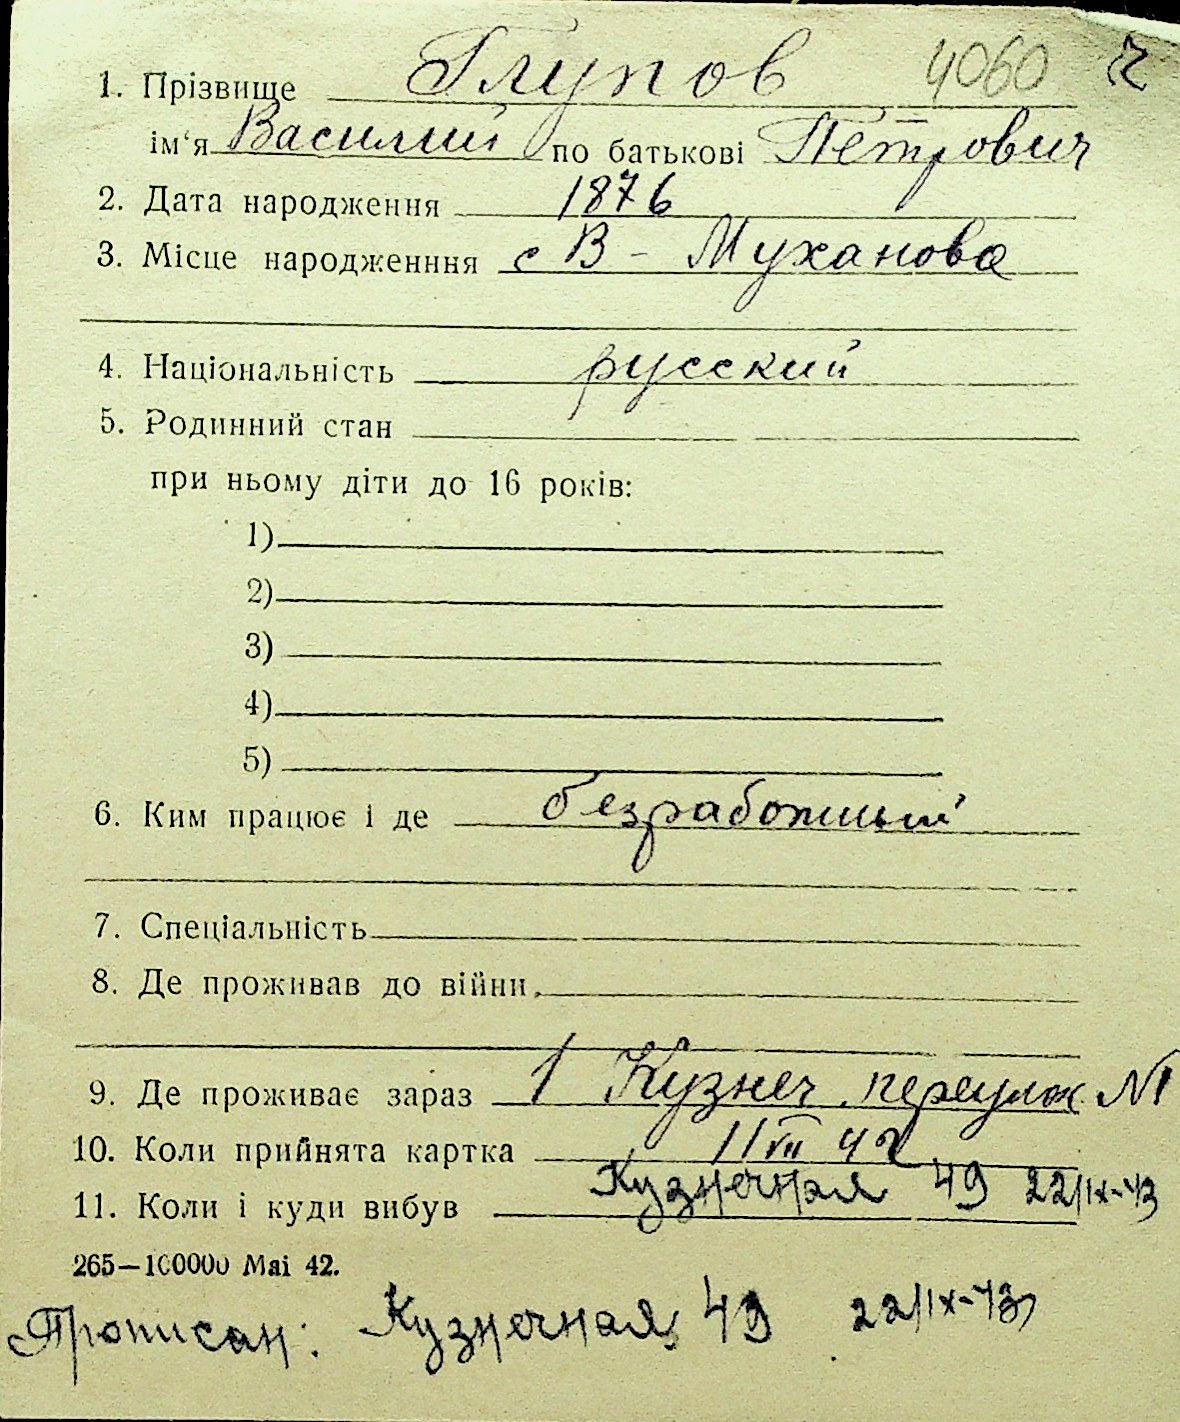 1. Прізвище Глупов 4060
ім‘я Василий по батькові Петрович
2. Дата народження 1876
3. Місце народженння с В - Муханова
4. Національність русский
5. Родинний стан
при ньому діти до 16 років:
1)
2)
3)
4)
5)
6. Ким працює і де безработный
7. Спеціальність
8. Де проживав до війни
9. Де проживає зараз 1 Кузнеч. переулок №1
10. Коли прийнята картка 11 VII 42
11. Коли і куди вибув Кузнечная 49 22/IX-43
265—100000 Mai 42.
Прописан: Кузнечная 49 22/IX-43